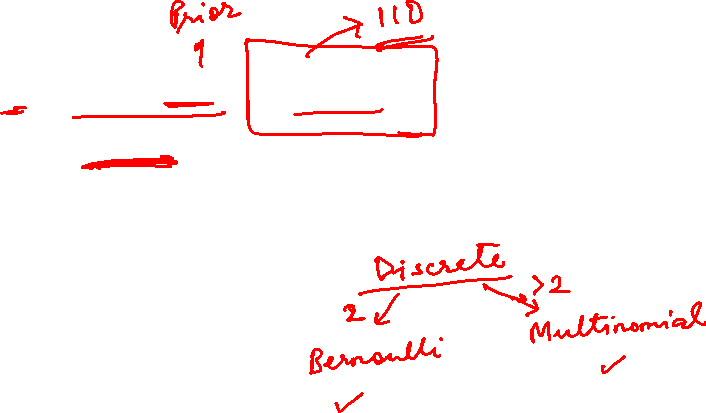 Prior
IID
Discrete
2
>2
Bernoulli
Multinomial